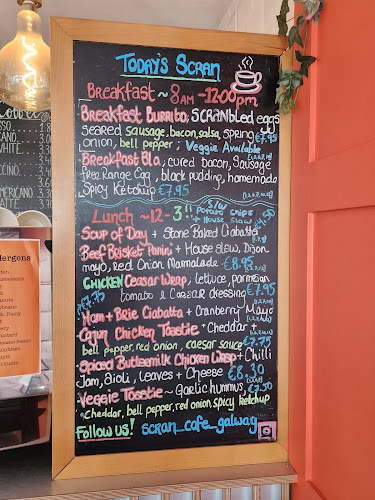 TODAY'S SCRAN
Breakfast ~ 8AM -12:00pm
Breakfast Burrito, SCRANbled eggs
Seared sausage, bacon, salsa, spring
onion, bell pepper; Veggie Available €7.95
Breakfast Bla, cured bacon, Sausage
free Range Egg, black pudding, homemade
Spicy Ketchup €7.95
Lunch ~12-3
S/W Potato chips
+ House slaw
Soup of Day + Stone Baked Ciabatta
Beef Brisket Panini + House slaw, Dijon
mayo, red Onion Marmalade €8.95
CHICKEN Ceasar Wrap, lettuce, parmesan
tomato & CAESAR dressing €7.95
Ham + Brie Ciabatta + Cranberry Mayo
€7.75
Cajun Chicken Toastie + Cheddar +
bell pepper, red onion, caesar sauce €7.75
Spiced Buttermilk Chicken Wrap + Chilli
Jam, aioli, leaves + Cheese €8.30
Veggie Toastie ~ Garlic hummus, €7.50
Cheddar, bell pepper, red onion, spicy ketchup
Follow us! scran_cafe_galway
WHITE
AMERICANO
LATTE